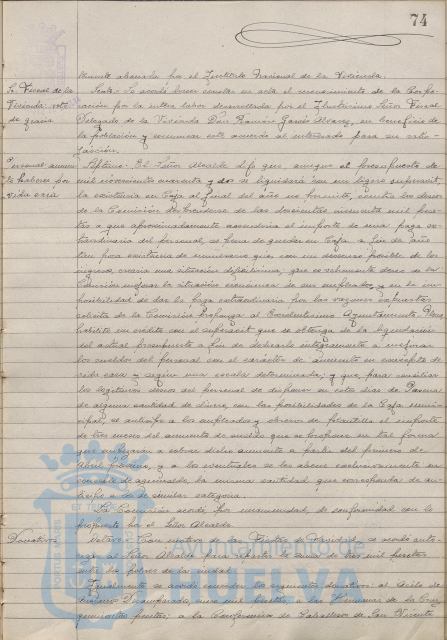 74
blemente abonada por el Instituto Nacional de la Vivienda.
Sr. Fiscal de la Vivienda voto de gracia
Sexto.- Se acordó hacer constar en acta el reconocimiento de la Corpo-
ración por la intensa labor desarrollada por el Ilustrísimo Señor Fiscal
Delegado de la Vivienda Don Ramón García Alvarez, en beneficio de
la población y comunicar este acuerdo al interesado para su satis-
facción.
Personal aumento haberes por vida cara
Séptimo.- El Señor Alcalde dijo que, aunque el presupuesto de
mil novecientos cuarenta y dos se liquidará con un ligero superavit,
la existencia en Caja al final del año no permite, contra los deseos
de la Comisión, desprenderse de las doscientas cincuenta mil pese-
tas a que aproximadamente ascendería el importe de una paga ex-
traordinaria del personal, ya que de quedar en Caja a fin de año
tan poca existencia de numerario
ingresos, crearía una situación dificilísima, que es vehemente deseo de la
Comisión mejorar la situación económica de sus empleados, y en la im-
posibilidad de dar la paga extraordinaria por las razones expuestas
solicita de la Comisión proponga al Excelentísimo Ayuntamiento Pleno
habilite un crédito con el superavit que se obtenga de la liquidación
del actual Presupuesto a fin de dedicarlo íntegramente a mejorar
los sueldos del personal con el carácter de aumento en concepto de
vida cara y según una escala determinada; y que, para conciliar
los legítimos deseos del personal de disponer en estos días de Pascua
de alguna cantidad de dinero, con las posibilidades de la Caja muni-
cipal, se anticipe a los empleados y obreros de plantilla el importe
de tres meses del aumento de sueldo que se propone en tal forma
que empiecen a cobrar dicho aumento a partir del primero de
Abril próximo, y a los eventuales se les abone exclusivamente en
concepto de aguinaldo, la misma cantidad que corresponda de an-
ticipo a los de similar categoría.
La Comisión acordó por unanimidad, de conformidad con lo
propuesto por el Señor Alcalde.
Donativos
Octavo.- Con motivo de las Fiestas de Navidad, se acordó auto-
rizar al Señor Alcalde para repartir la suma de tres mil pesetas
entre los pobres de la ciudad.
Igualmente se acordó conceder los siguientes donativos: al Asilo de
Ancianos Desamparados, mil pesetas; a las Hermanas de la Cruz
quinientas pesetas; a la Conferencia de Caballeros de San Vicente
Ayuntamiento de
HUELVA